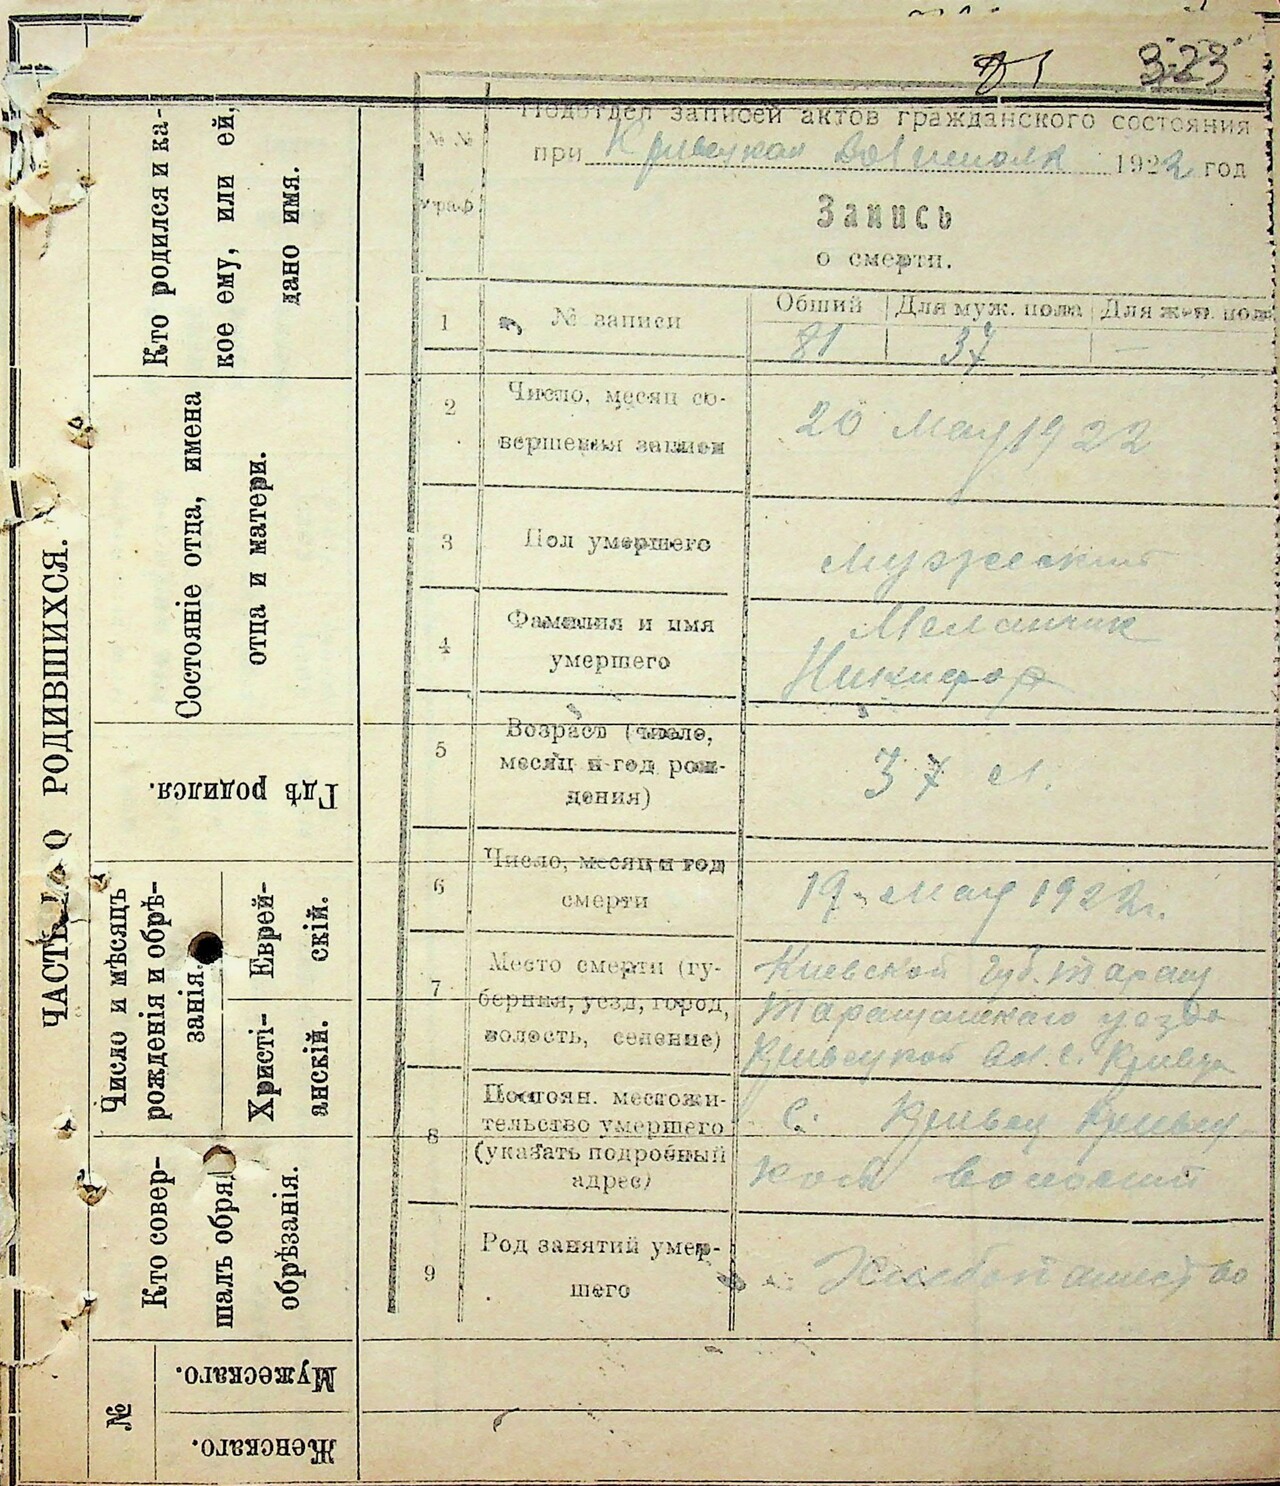 323
Подотдел записей актов гражданского состояния
при Кривецком Волисполк 1922 год
Запись
о смерти.
№ граф.
1 № записи
Общий Для муж. пола Для жен. пола
81 37 —
2 Число, месяц со-
вершения записи
20 Мая 1922
3 Пол умершего
Мужеский
4 Фамилия и имя
умершего
Меланчик
Никифор
5 Возраст (число,
месяц и год рож-
дения)
37 л.
6 Число, месяц и год
смерти
19 мая 1922 г.
7 Место смерти (гу-
берния, уезд, город,
волость, селение)
Киевской Губ. Таращ
Таращанскаго уезда
Кривецкой вол. с. Кривца
8 Постоян. местожи-
тельство умершего
(указать подробный
адрес)
С. Кривец Кривец-
кой волости
9 Род занятий умер-
шего
Хлебопашество
ЧАСТЬ О РОДИВШИХСЯ.
Кто родился и ка-
кое ему, или ей,
дано имя.
Состояніе отца, имена
отца и матери.
Гдѣ родился.
Число и мѣсяцъ
рожденія и обрѣ-
занія.
Еврей-
скій.
Христі-
анскій.
Кто совер-
шалъ обря
обрѣзанія.
№
Мужескаго.
Женскаго.